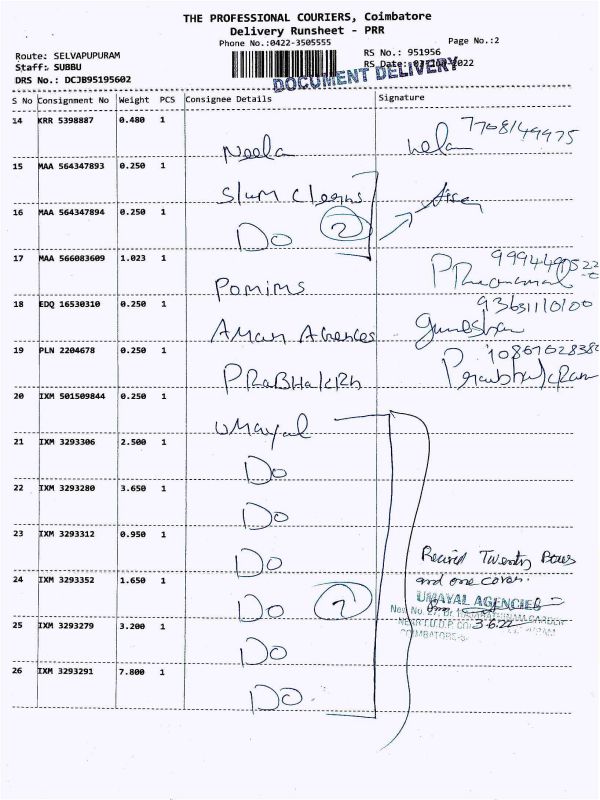 THE PROFESSIONAL COURIERS, Coimbatore
Delivery Runsheet - PRR
Phone No.:0422-3505555
Page No.:2
Route: SELVAPUPURAM
RS No.: 951956
Staff: SUBBU
RS Date:
DRS No.: DCJB95195602
DOCUMENT DELIVERY
S No Consignment No Weight PCS Consignee Details Signature
14 KRR 5398887 0.480 1
Neela 7708149975
15 MAA 564347893 0.250 1
Slum Cleans
16 MAA 564347894 0.250 1
Do 2
17 MAA 566083609 1.023 1
Pomims
18 EDQ 16530310 0.250 1
Aman Agences
19 PLN 2204678 0.250 1
PRaBHakRh
20 IXM 501509844 0.250 1
UMayal
21 IXM 3293306 2.500 1
Do
22 IXM 3293280 3.650 1
Do
23 IXM 3293312 0.950 1
Do
Received Twenty Boxes
and one cover.
24 IXM 3293352 1.650 1
Do 7
UMAYAL AGENCIES
25 IXM 3293279 3.200 1
3.6.22
COIMBATORE
Do
26 IXM 3293291 7.800 1
Do.